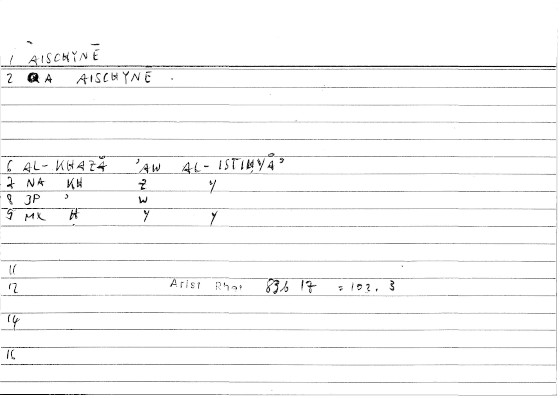 1 AISCHYNĒ
2 QA AISCHYNĒ .
6 AL- KHAZĀ 'AW AL- ISTIḤYĀ'
7 NA KH Z Y
8 JP ' W
9 MX H Y Y
11
12 Arist Rhet 83b 17 = 102, 3
14
16